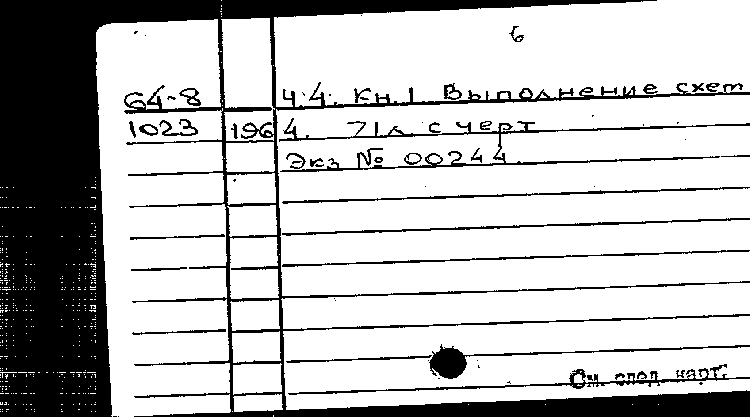 6
64-8 Ч.4. Кн.1 Выполнение схем
1023 1964. 71л с черт
Экз № 00244
См. след. карт.